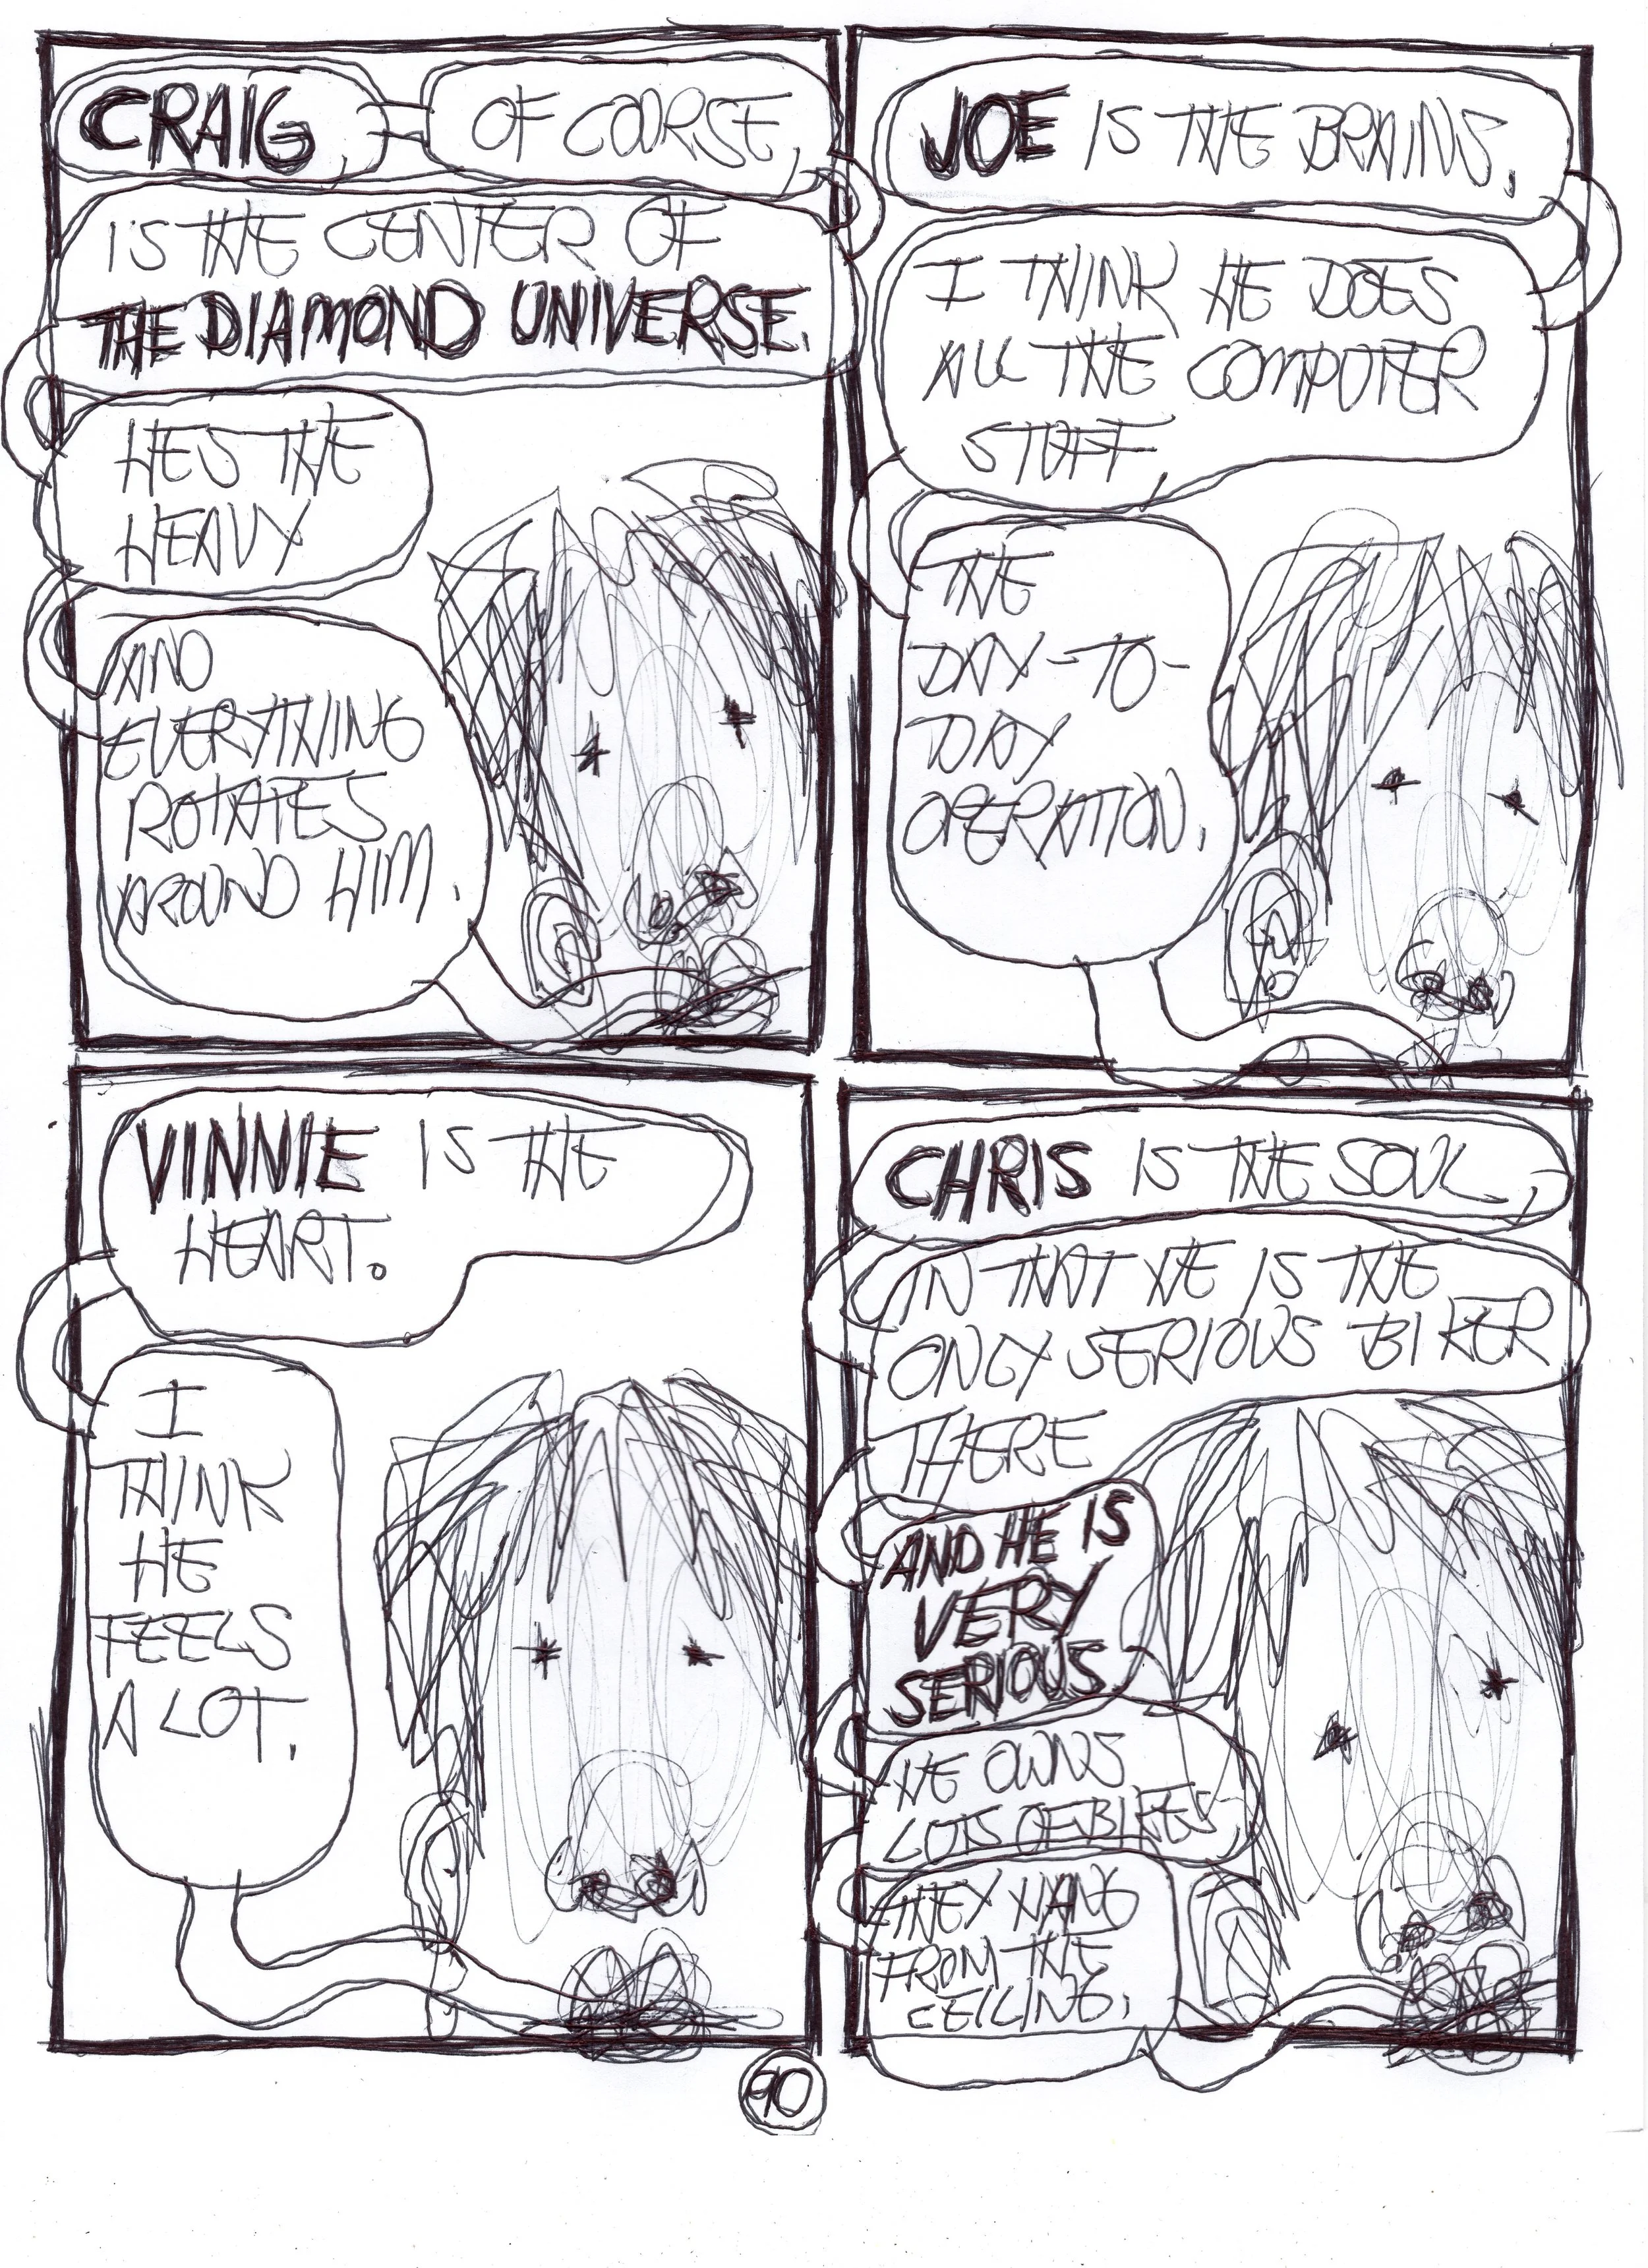 CRAIG, OF COURSE,
IS THE CENTER OF
THE DIAMOND UNIVERSE.
HES THE
HEAVY
AND
EVERYTHING
ROTATES
AROUND HIM.
JOE IS THE BRAINS.
I THINK HE DOES
ALL THE COMPUTER
STUFF,
THE
DAY-TO-
DAY
OPERATION.
VINNIE IS THE
HEART.
I
THINK
HE
FEELS
A LOT.
CHRIS IS THE SOUL,
IN THAT HE IS THE
ONLY SERIOUS BIKER
THERE
AND HE IS
VERY
SERIOUS
HE OWNS
LOTS OF BIKES,
THEY HANG
FROM THE
CEILING.
90